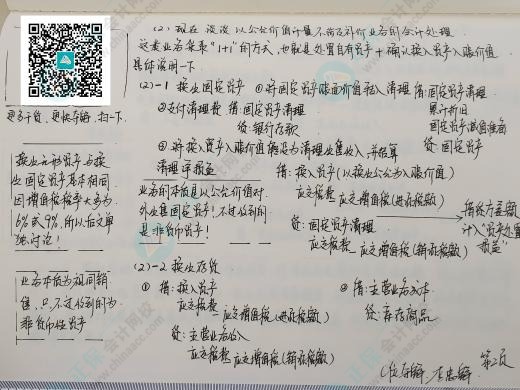 (2) 现在谈谈以公允价值计量不涉及补价业务的会计处理
这类业务采取"1+1"的方式，也就是处置自有资产+确认换入资产入账价值
具体说明一下
(2)-1 换出固定资产 ①将固定资产账面价值转入清理 借：固定资产清理
累计折旧
固定资产减值准备
贷：固定资产
②支付清理费 借：固定资产清理
贷：银行存款
③将换入资产入账价值确认为清理出售收入，并结算
清理净损益
借：换入资产(以换出公允为入账价值)
应交税费 应交增值税(进项税额)
贷：固定资产清理
应交税费 应交增值税(销项税额)
借贷方差额
计入"资产处置
损益"
更多干货，更快了解，扫一下
换出无形资产与换
出固定资产基本相同
因增值税税率大多为
6%或9%，所以后文单
独讨论！
业务的本质是以公允价值对
外出售固定资产！不过收到的
是非货币资产！
(2)-2 换出存货
① 借：换入资产
应交税费 应交增值税(进项税额)
贷：主营业务收入
应交税费 应交增值税(销项税额)
② 借：主营业务成本
贷：库存商品
业务本质为视同销
售，只不过收到的为
非货币性资产
第2页